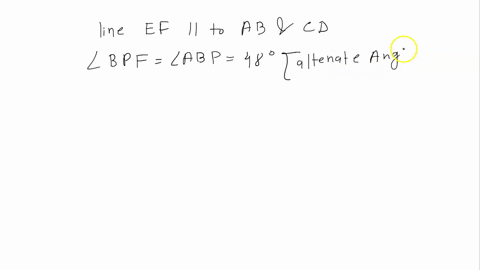 line EF || to AB & CD
∠BPF = ∠ABP = 48° [altenate Ang